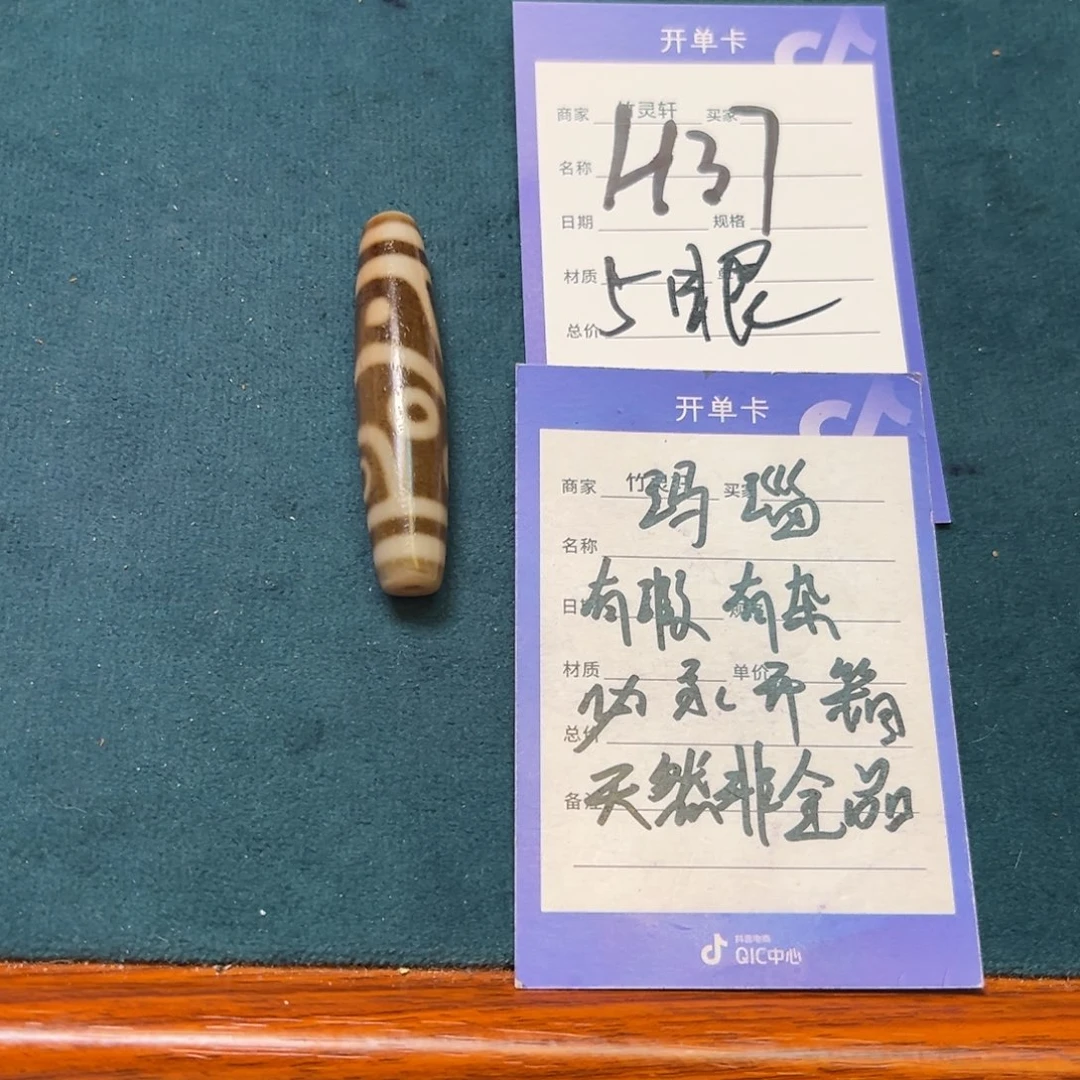 开单卡
商家 竹灵轩 买家
H37
名称
日期 规格
材质
5眼
总价
开单卡
商家 竹灵 买家
玛瑙
名称
有瑕 有杂
日期
材质 单价
功 开 箱
总价
天然非全品
备注
抖音电商
QIC中心